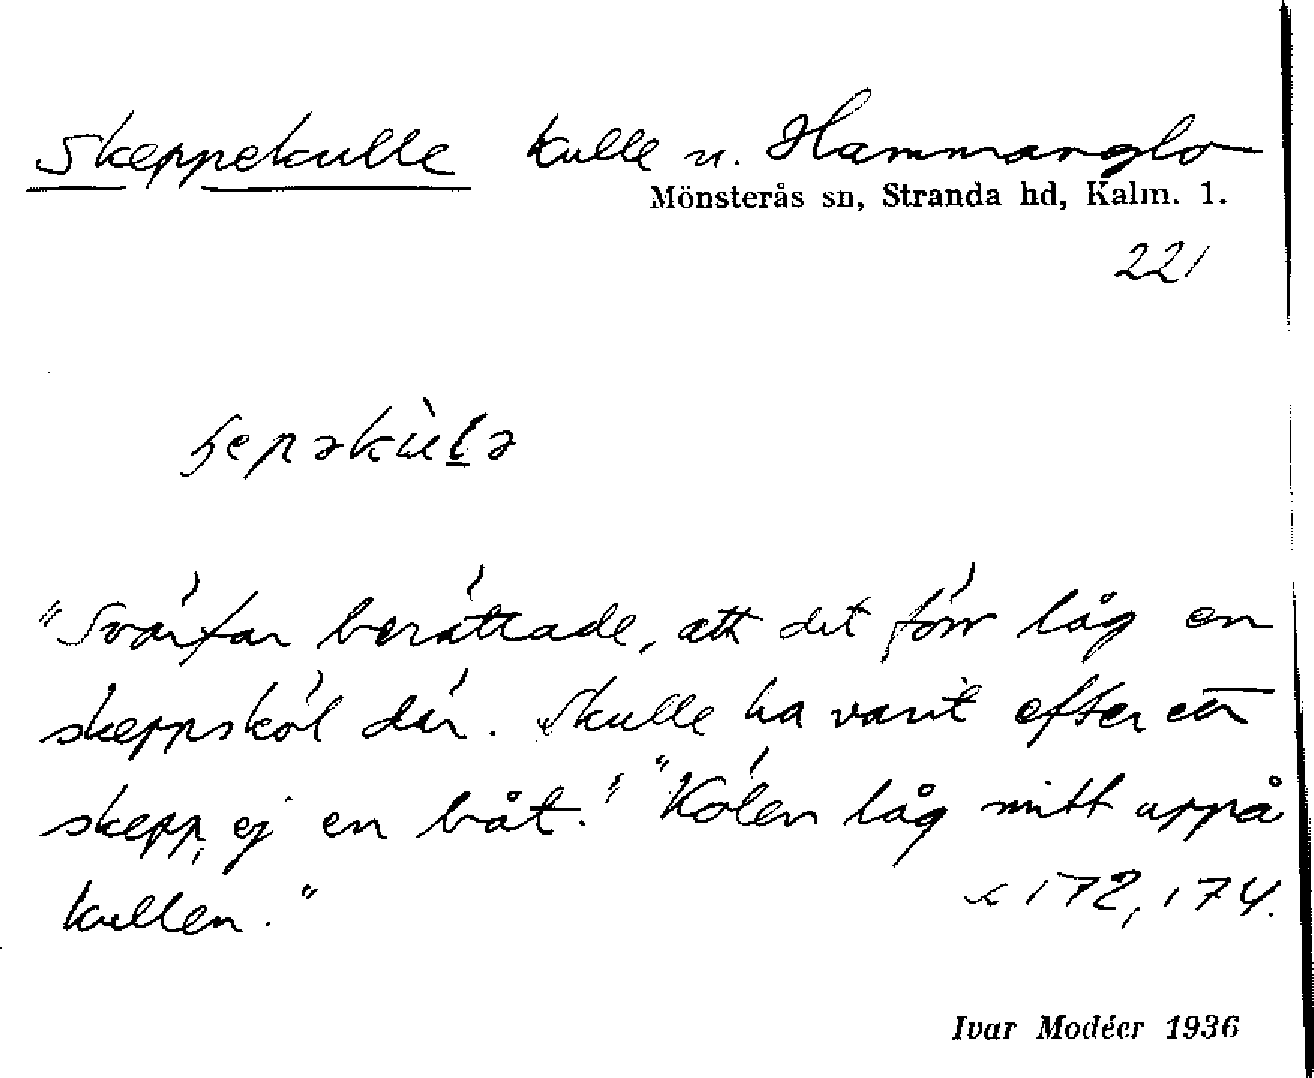 Skeppekulle kulle n. Hammarglo
Mönsterås sn, Stranda hd, Kalm. l.
221
"Svärfar berättade, att det förr låg en
skeppsköl där. Skulle ha varit efter ett
skepp, ej en båt." "Kölen låg mitt uppå
kullen."
172, 174.
Ivar Modéer 1936